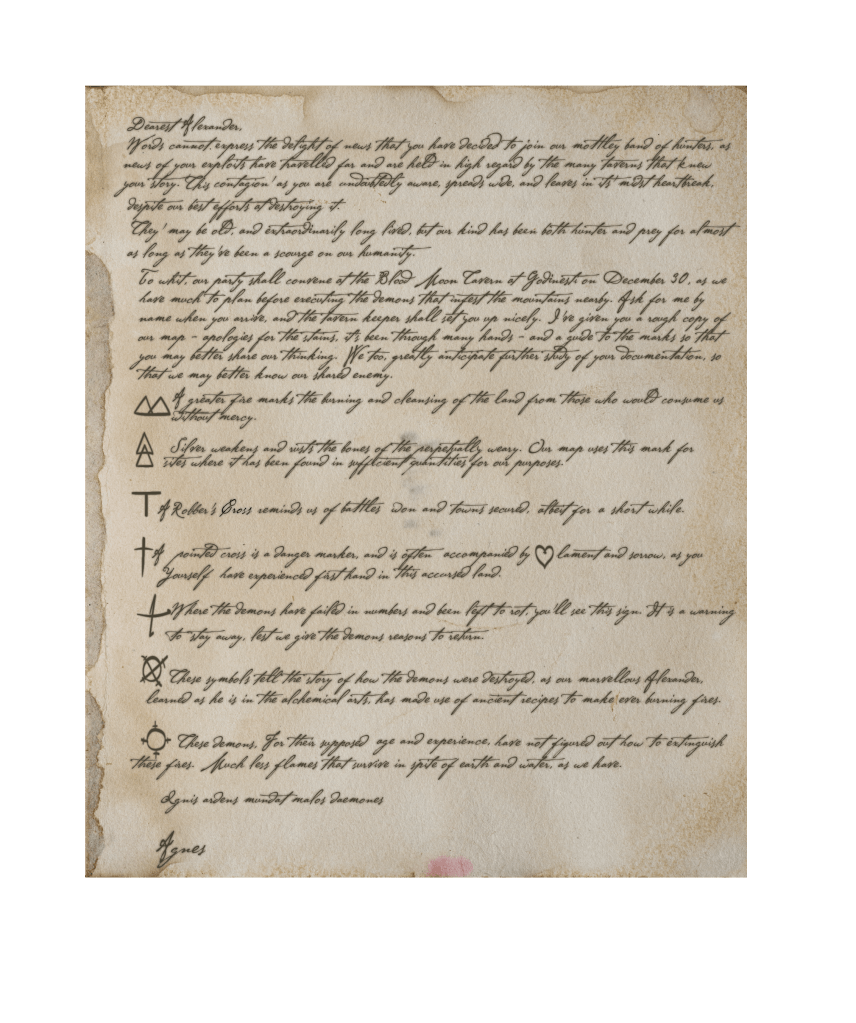 Dearest Alexander,
Words cannot express the delight of news that you have decided to join our mottley band of hunters, as
news of your exploits have travelled far and are held in high regard by the many taverns that knew
your story. This contagion' as you are undoubtedly aware, spreads wide, and leaves in its' midst heartbreak,
despite our best efforts at destroying it.
They' may be old, and extraordinarily long lived, but our kind has been both hunter and prey for almost
as long as they've been a scourge on our humanity.
To whit, our party shall convene at the Blood Moon Tavern at Godinesti on December 30, as we
have much to plan before executing the demons that infest the mountains nearby. Ask for me by
name when you arrive, and the tavern keeper shall set you up nicely. I've given you a rough copy of
our map - apologies for the stains, it's been through many hands - and a guide to the marks so that
you may better share our thinking. We too, greatly anticipate further study of your documentation, so
that we may better know our shared enemy.
A greater fire marks the burning and cleansing of the land from those who would consume us
without mercy.
Silver weakens and rusts the bones of the perpetually weary. Our map uses this mark for
sites where it has been found in sufficient quantities for our purposes.
A Robber's Cross reminds us of battles won and towns secured, albeit for a short while.
A pointed cross is a danger marker, and is often accompanied by lament and sorrow, as you
yourself have experienced first hand in this accursed land.
Where the demons have failed in numbers and been left to rot, you'll see this sign. It is a warning
to stay away, lest we give the demons reasons to return.
These symbols tell the story of how the demons were destroyed, as our marvellous Alexander,
learned as he is in the alchemical arts, has made use of ancient recipes to make ever burning fires.
These demons, For their supposed age and experience, have not figured out how to extinguish
these fires. Much less flames that survive in spite of earth and water, as we have.
Ignis ardens mundat malos daemones
Agnes